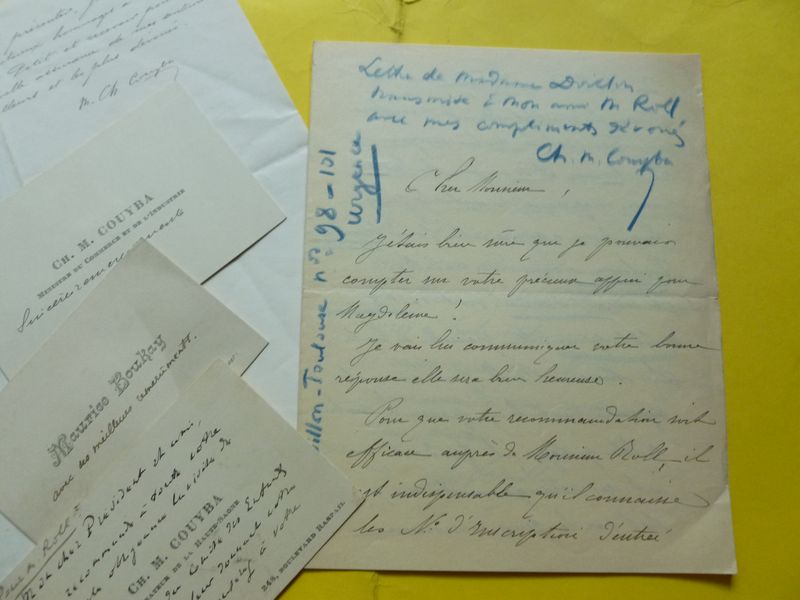 présenter, je
hommages à
Petit et recevoir pour
de mes sentiments
et les plus dévoués
M. Ch Couyba
CH. M. COUYBA
MINISTRE DU COMMERCE ET DE L'INDUSTRIE
Sincères remerciements
Maurice Boukay
avec ses meilleurs remerciements.
Pour M. Roll
Mon cher Président et ami,
recommande à toute votre
la visite de
CH. M. COUYBA
SÉNATEUR DE LA HAUTE-SAÔNE
du Comité des Enfants
votre
à votre
248, BOULEVARD RASPAIL
Lettre de Madame Doillon
transmise à mon ami M Roll
avec mes compliments dévoués
Ch. M. Couyba
illon-Toulouse nos 98-101
urgence
Cher Monsieur,
J'étais bien sûre que je pouvais
compter sur votre précieux appui pour
Magdeleine!
Je vais lui communiquer votre bonne
réponse elle sera bien heureuse.
Pour que votre recommandation soit
efficace auprès de Monsieur Roll, il
est indispensable qu'il connaisse
les No d'Inscription d'entrée